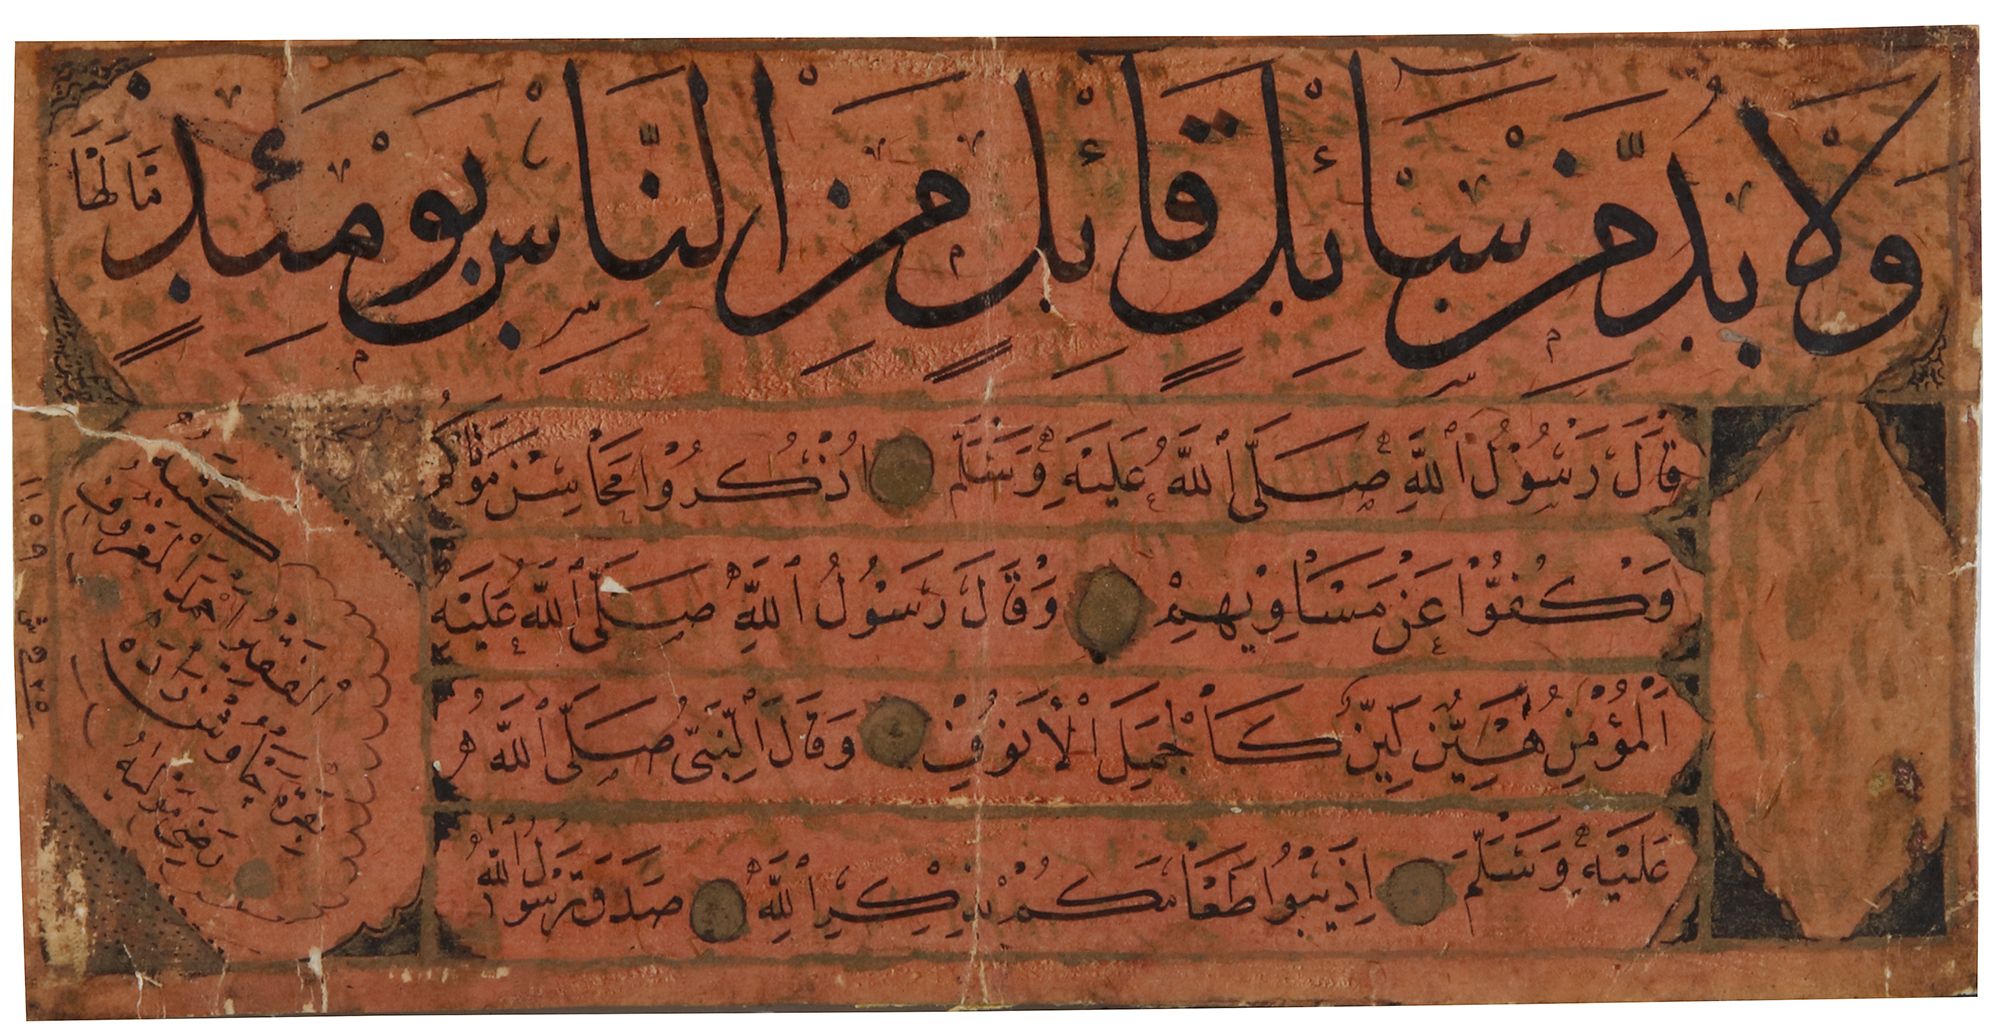 وَلَا بُدَّ مِنْ سَائِلٍ قَائِلٍ مِنَ النَّاسِ يَوْمَئِذٍ
مَا لَهَا
قَالَ رَسُولُ اللَّهِ صَلَّى اللَّهُ عَلَيْهِ وَسَلَّمَ اذْكُرُوا مَحَاسِنَ مَوْتَاكُمْ
وَكُفُّوا عَنْ مَسَاوِيهِمْ وَقَالَ رَسُولُ اللَّهِ صَلَّى اللَّهُ عَلَيْهِ
الْمُؤْمِنُ هَيِّنٌ لَيِّنٌ كَالْجَمَلِ الْأَنُوفِ وَقَالَ النَّبِيُّ صَلَّى اللَّهُ
عَلَيْهِ وَسَلَّمَ اذِيبُوا طَعَامَكُمْ بِذِكْرِ اللَّهِ صَدَقَ رَسُولُ اللَّهِ
كتبه
الفقير أحمد المعروف